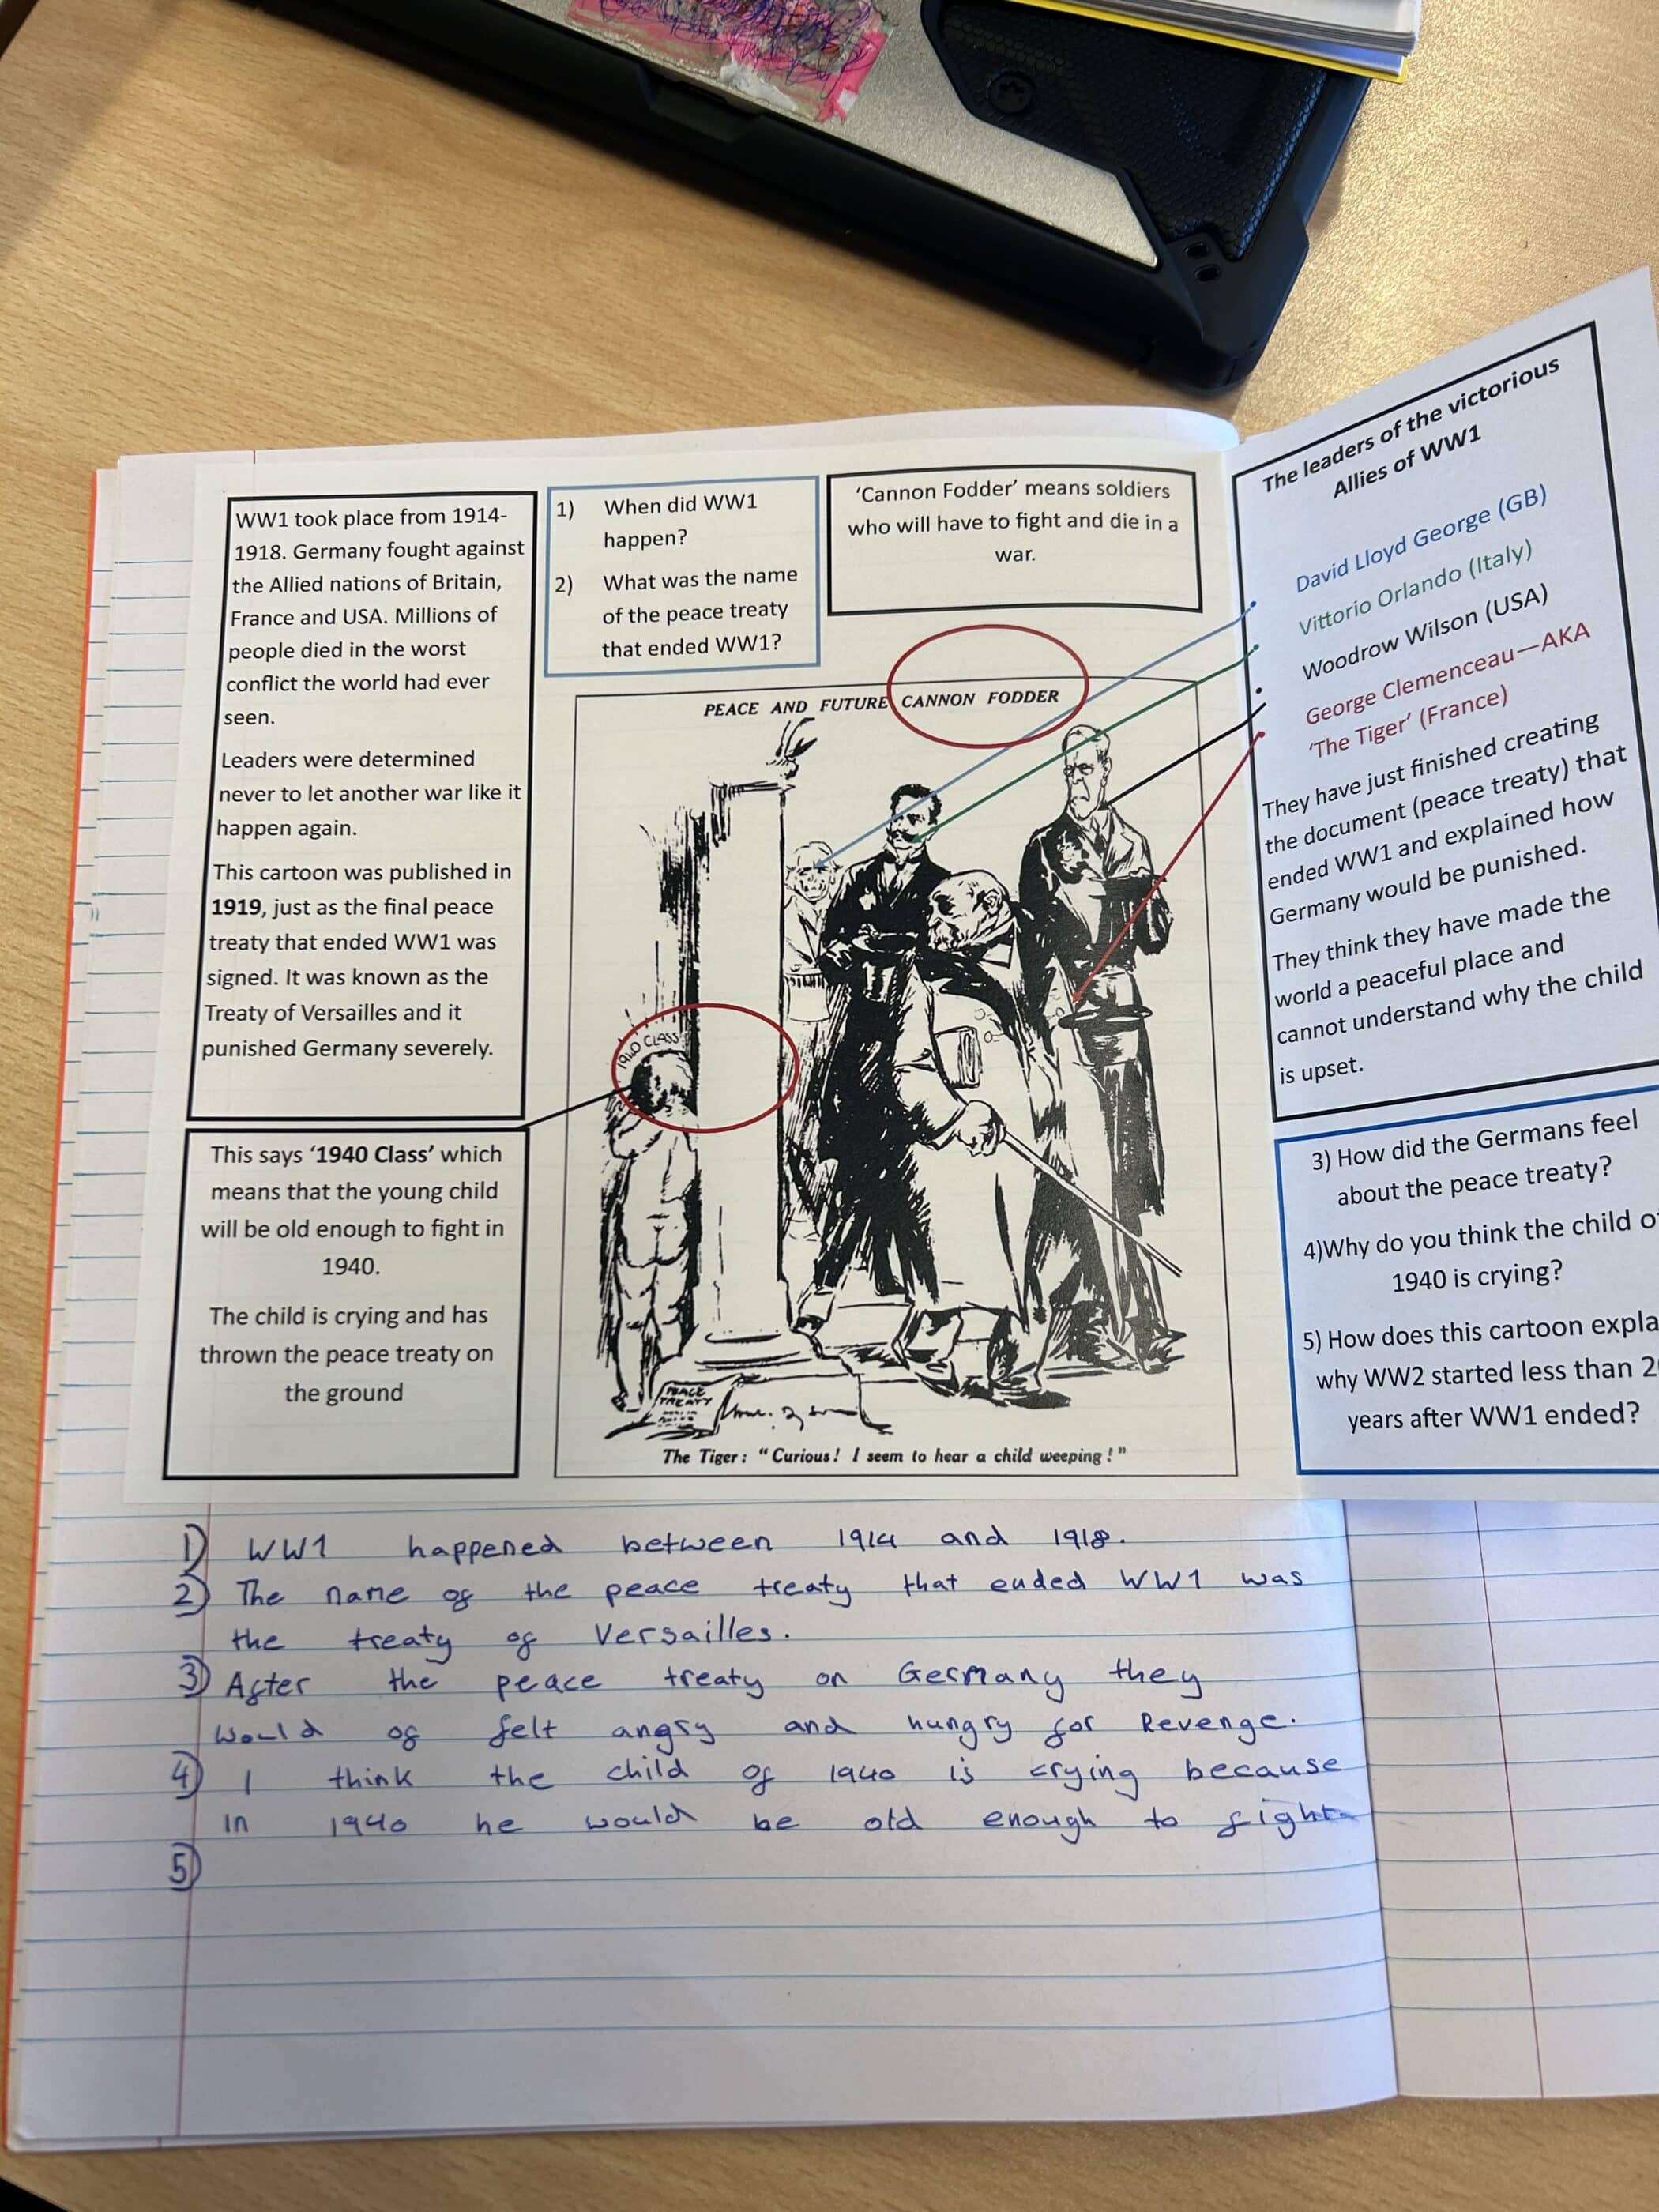 WW1 took place from 1914-
1918. Germany fought against
the Allied nations of Britain,
France and USA. Millions of
people died in the worst
conflict the world had ever
seen.
Leaders were determined
never to let another war like it
happen again.
This cartoon was published in
1919, just as the final peace
treaty that ended WW1 was
signed. It was known as the
Treaty of Versailles and it
punished Germany severely.
This says ‘1940 Class’ which
means that the young child
will be old enough to fight in
1940.
The child is crying and has
thrown the peace treaty on
the ground
1) When did WW1
happen?
2) What was the name
of the peace treaty
that ended WW1?
‘Cannon Fodder’ means soldiers
who will have to fight and die in a
war.
PEACE AND FUTURE CANNON FODDER
1940 CLASS
PEACE
TREATY
The Tiger: “Curious! I seem to hear a child weeping!”
The leaders of the victorious
Allies of WW1
David Lloyd George (GB)
Vittorio Orlando (Italy)
Woodrow Wilson (USA)
George Clemenceau—AKA
‘The Tiger’ (France)
They have just finished creating
the document (peace treaty) that
ended WW1 and explained how
Germany would be punished.
They think they have made the
world a peaceful place and
cannot understand why the child
is upset.
3) How did the Germans feel
about the peace treaty?
4)Why do you think the child of
1940 is crying?
5) How does this cartoon expla
why WW2 started less than 2
years after WW1 ended?
1) WW1 happened between 1914 and 1918.
2) The name of the peace treaty that ended WW1 was
the treaty of Versailles.
3) After the peace treaty on Germany they
would of felt angry and hungry for Revenge.
4) I think the child of 1940 is crying because
in 1940 he would be old enough to fight
5)